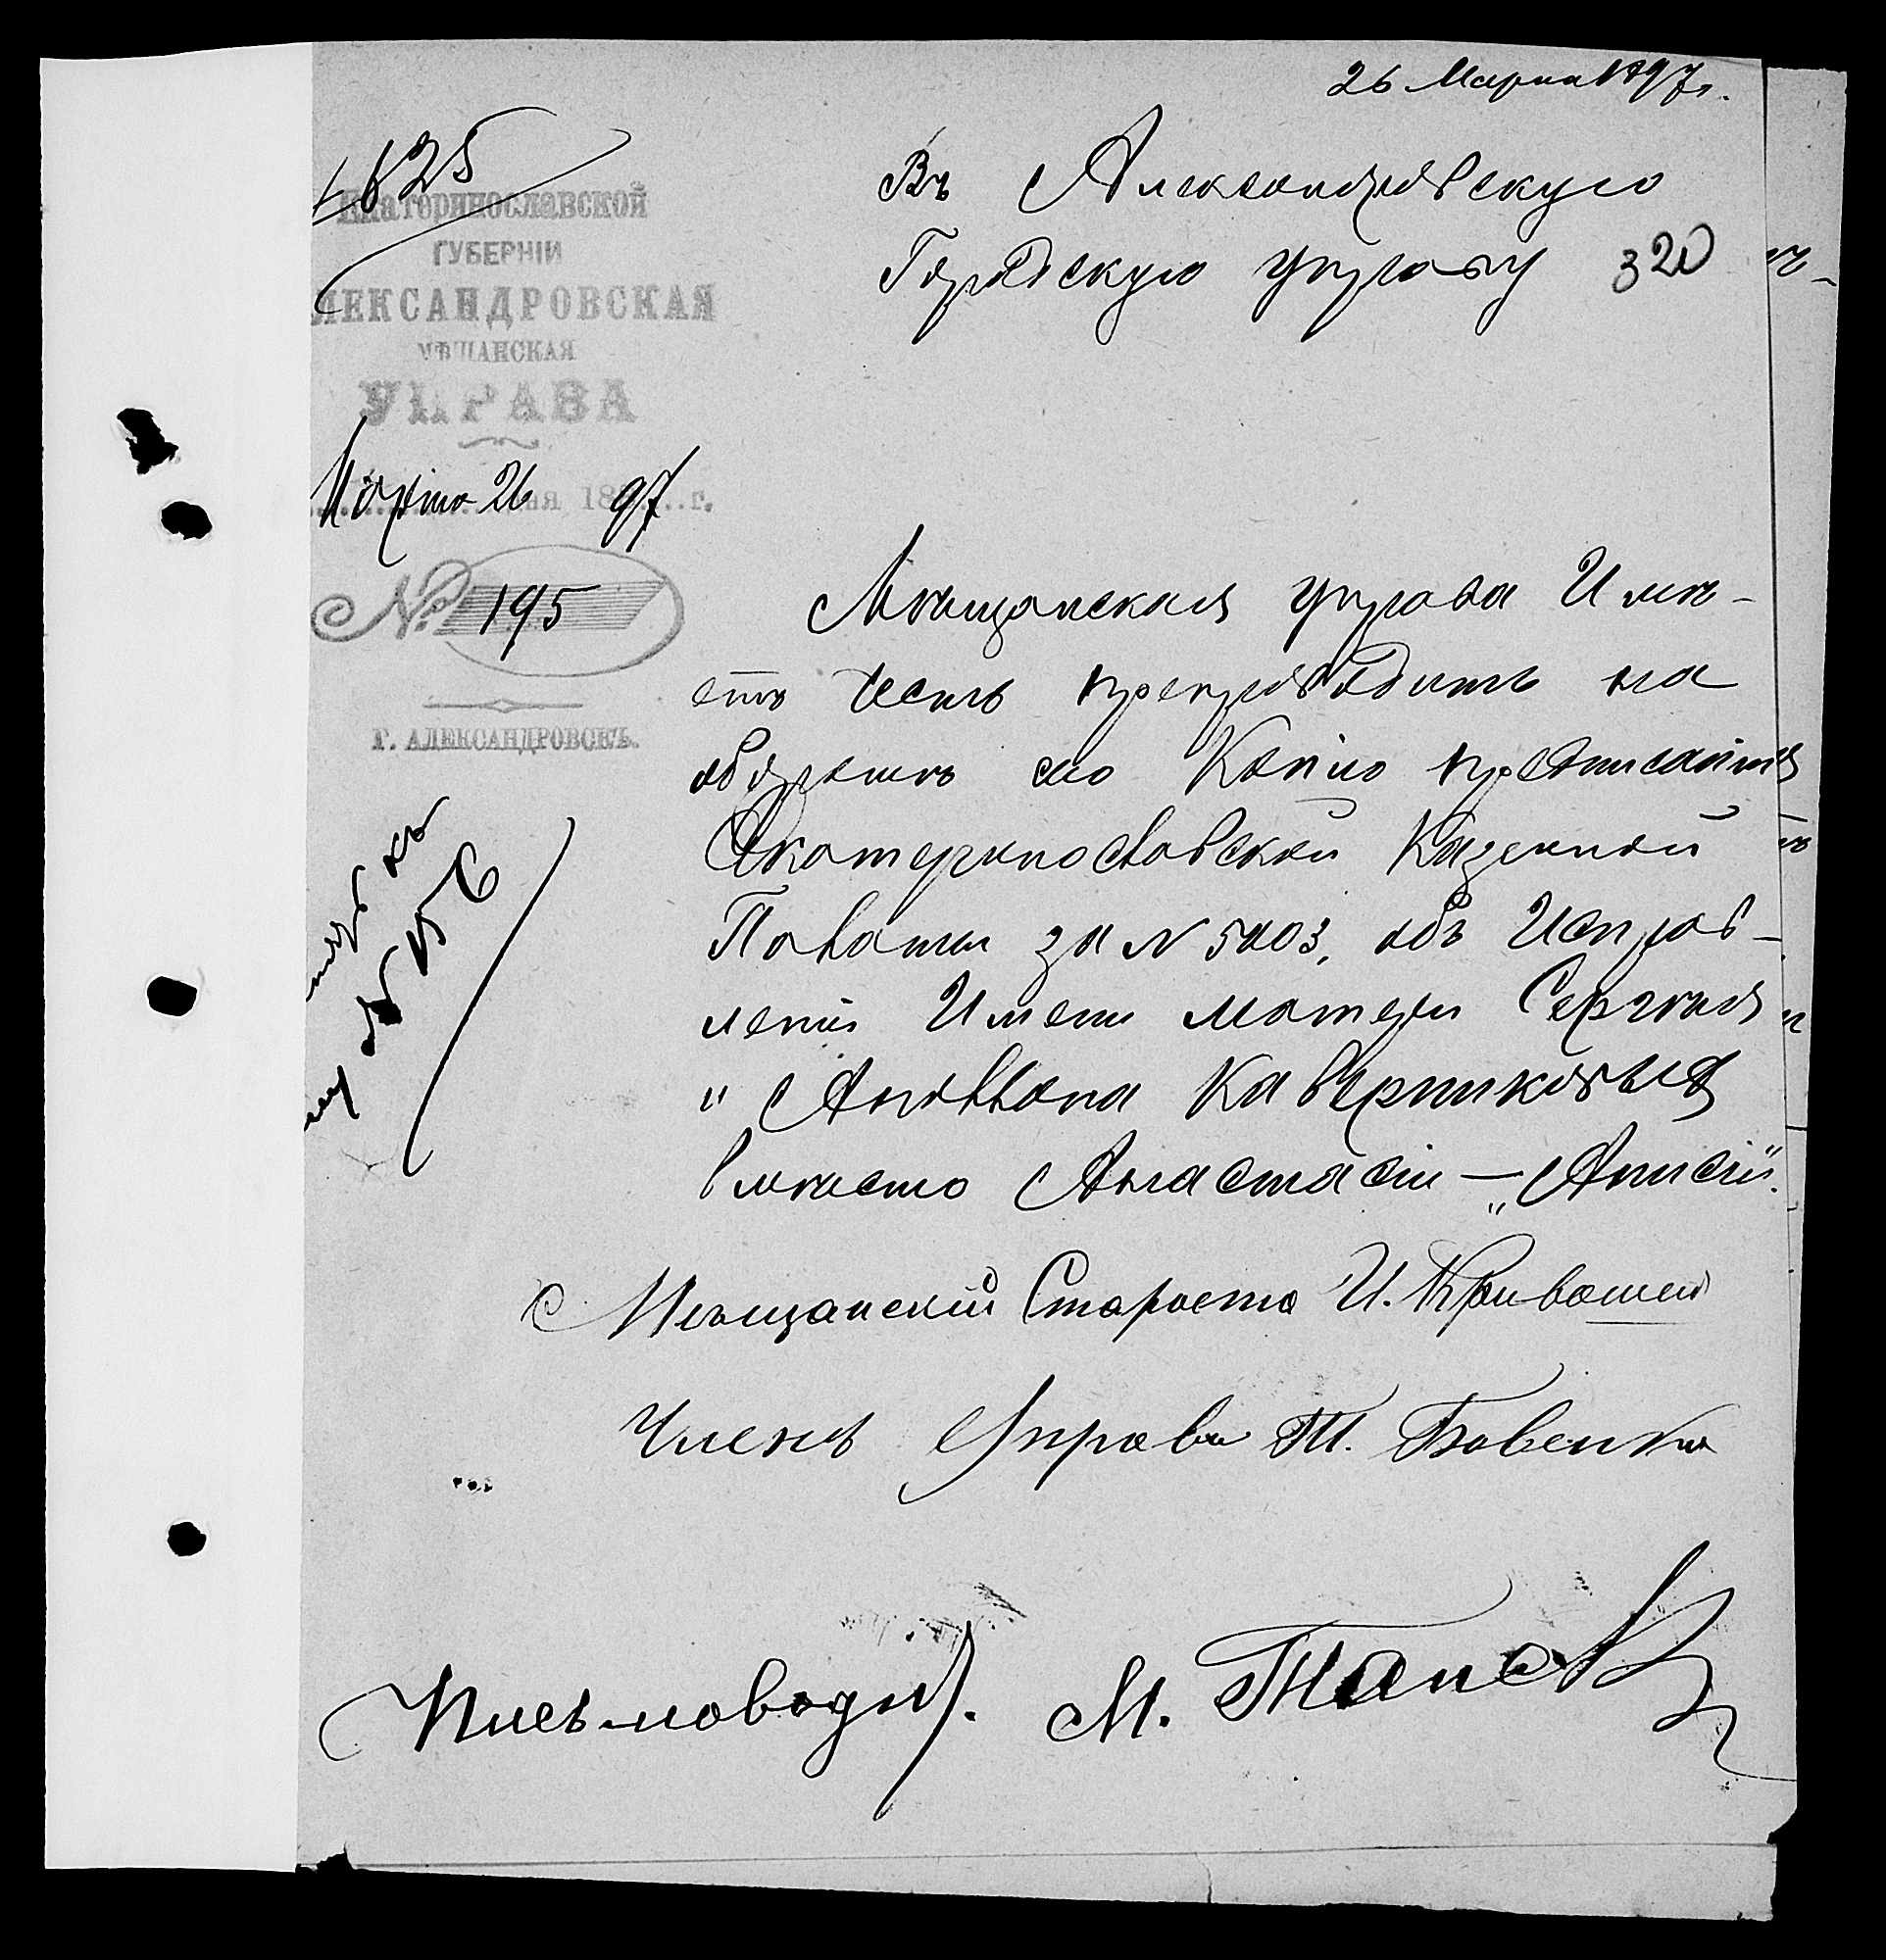 26 Марта 1897 г.
1825
Екатеринославской
ГУБЕРНІИ
ЛЕКСАНДРОВСКАЯ
МѢЩАНСКАЯ
УПРАВА
Марта 26 дня 1897 г.
№ 195
Г. АЛЕКСАНДРОВСКЪ.
Въ Александровскую
Городскую управу 320
Мѣщанская управа Имѣ-
етъ честь препроводить на
оборотѣ сего Копію предписанія
Екатеринославской Казенной
Палаты за N 5003, объ Исправ-
леніи Имени матери Сергѣя
и Антона Каверниковыя
вмѣсто Анастасіи — „Анисіи".
Мѣщанскій Староста И. Кривошей
Членъ Управы Т. Бовенко
Письмоводит. М.